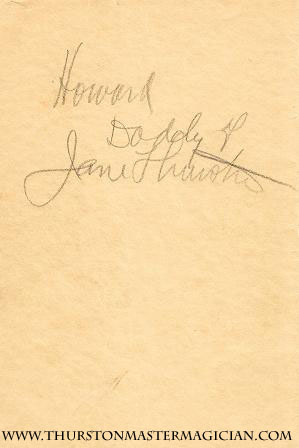 Howard
Daddy &
Jane Thurston
WWW.THURSTONMASTERMAGICIAN.COM